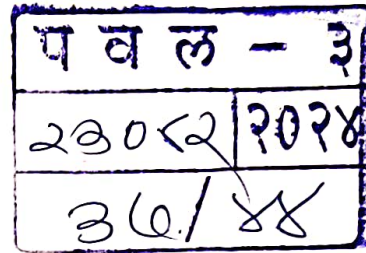 पवल - ३
२३०८२ २०२४
३७/४४